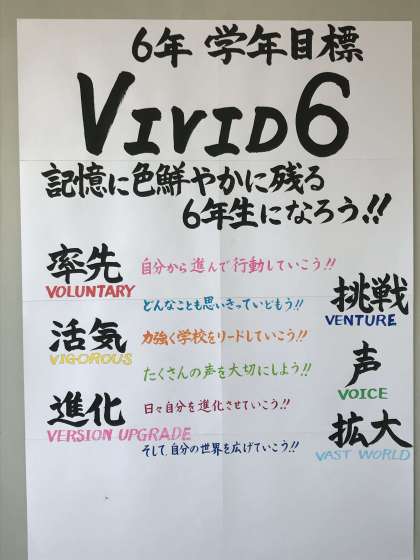 6年 学年目標
VIVID6
記憶に色鮮やかに残る
6年生になろう!!
率先
VOLUNTARY
自分から進んで行動していこう!!
どんなことも思いきっていどもう!!
挑戦
VENTURE
活気
VIGOROUS
力強く学校をリードしていこう!!
たくさんの声を大切にしよう!!
声
VOICE
進化
VERSION UPGRADE
日々自分を進化させていこう!!
そして自分の世界を広げていこう!!
拡大
VAST WORLD